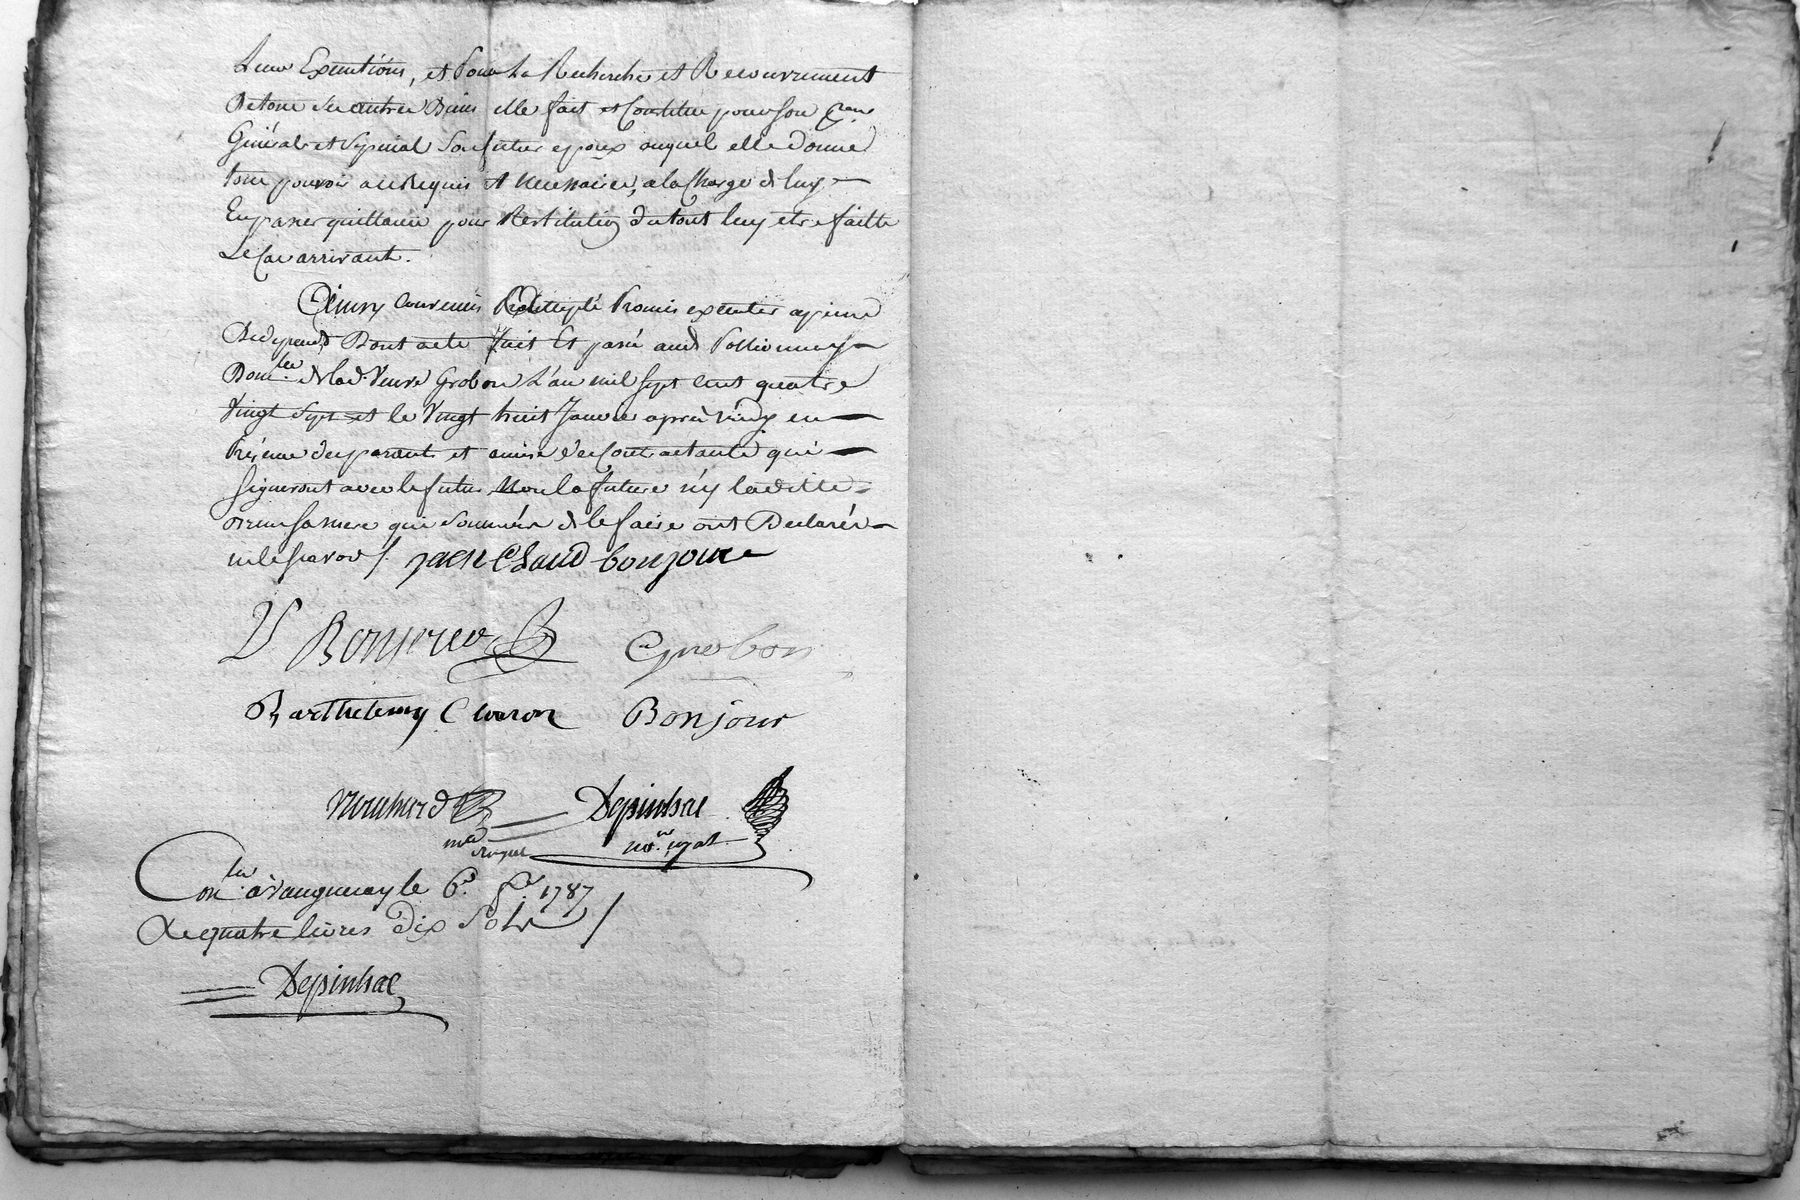 Leur Exécutions, et Pour La Recherche et Recouvrement
De tous Ses autres Biens elle fait et Constitue pour son
Général et Special Son futur epoux auquel elle donne
tous pouvoir a ce Requis et Necessaire, a la Charge de luy
En passer quittance pour Restitution du tout luy etre faitte
Le Cas arrivant.
Ainsy Convenus Promis executer a peine
De depends Dont acte fait Et passé aud Pollionnay
Domlle de lad. Veuve Grobon L'an mil sept cent quatre
Vingt Sept et le Vingt huit Janvier après midy en
Présence des parants et amis des Contractants qui
signeront avec le futur Non la future n'y laditte
sa mere qui Sommées de le faire ont Declarés
ne le savoir /. Jaen Claud bonjour
Bonjour C grobon
Barthelemy Charon Bonjour
Depinhac
nore royal
Conlle à Vaugneray le 6e fr 1787
De quatre livres Dix Sols /
Depinhac